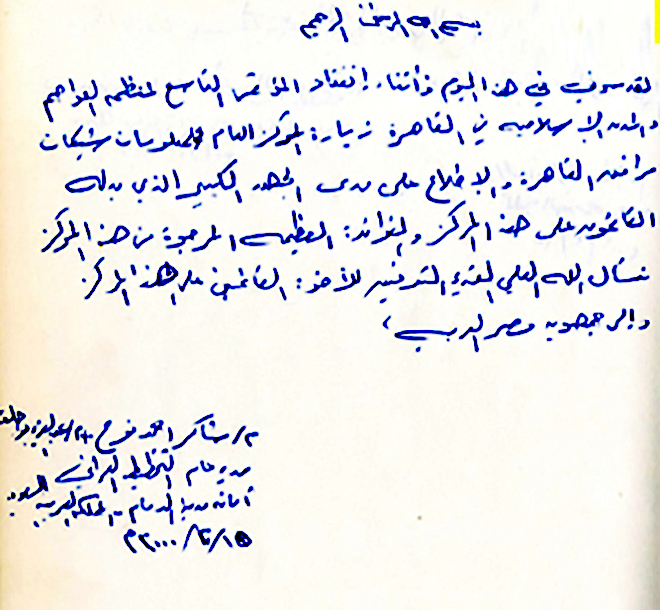 بسم الله الرحمن الرحيم
لقد سرني في هذا اليوم وأثناء إنعقاد المؤتمر التاسع لمنظمة العواصم
والمدن الإسلامية في القاهرة زيارة المركز العام لمعلومات شبكات
مرافق القاهرة والإطلاع على مدى الجهد الكبير الذي بذله
القائمون على هذا المركز والفوائد العظيمة المرجوة من هذا المركز
نسأل الله العلي القدير التوفيق للأخوة القائمين على هذا المركز
وإلى جمهورية مصر العربية،
م/ شاكر احمد
مدير عام التخطيط العمراني
أمانة مدينة الدمام - المملكة العربية السعودية
م٢٠٠٠/